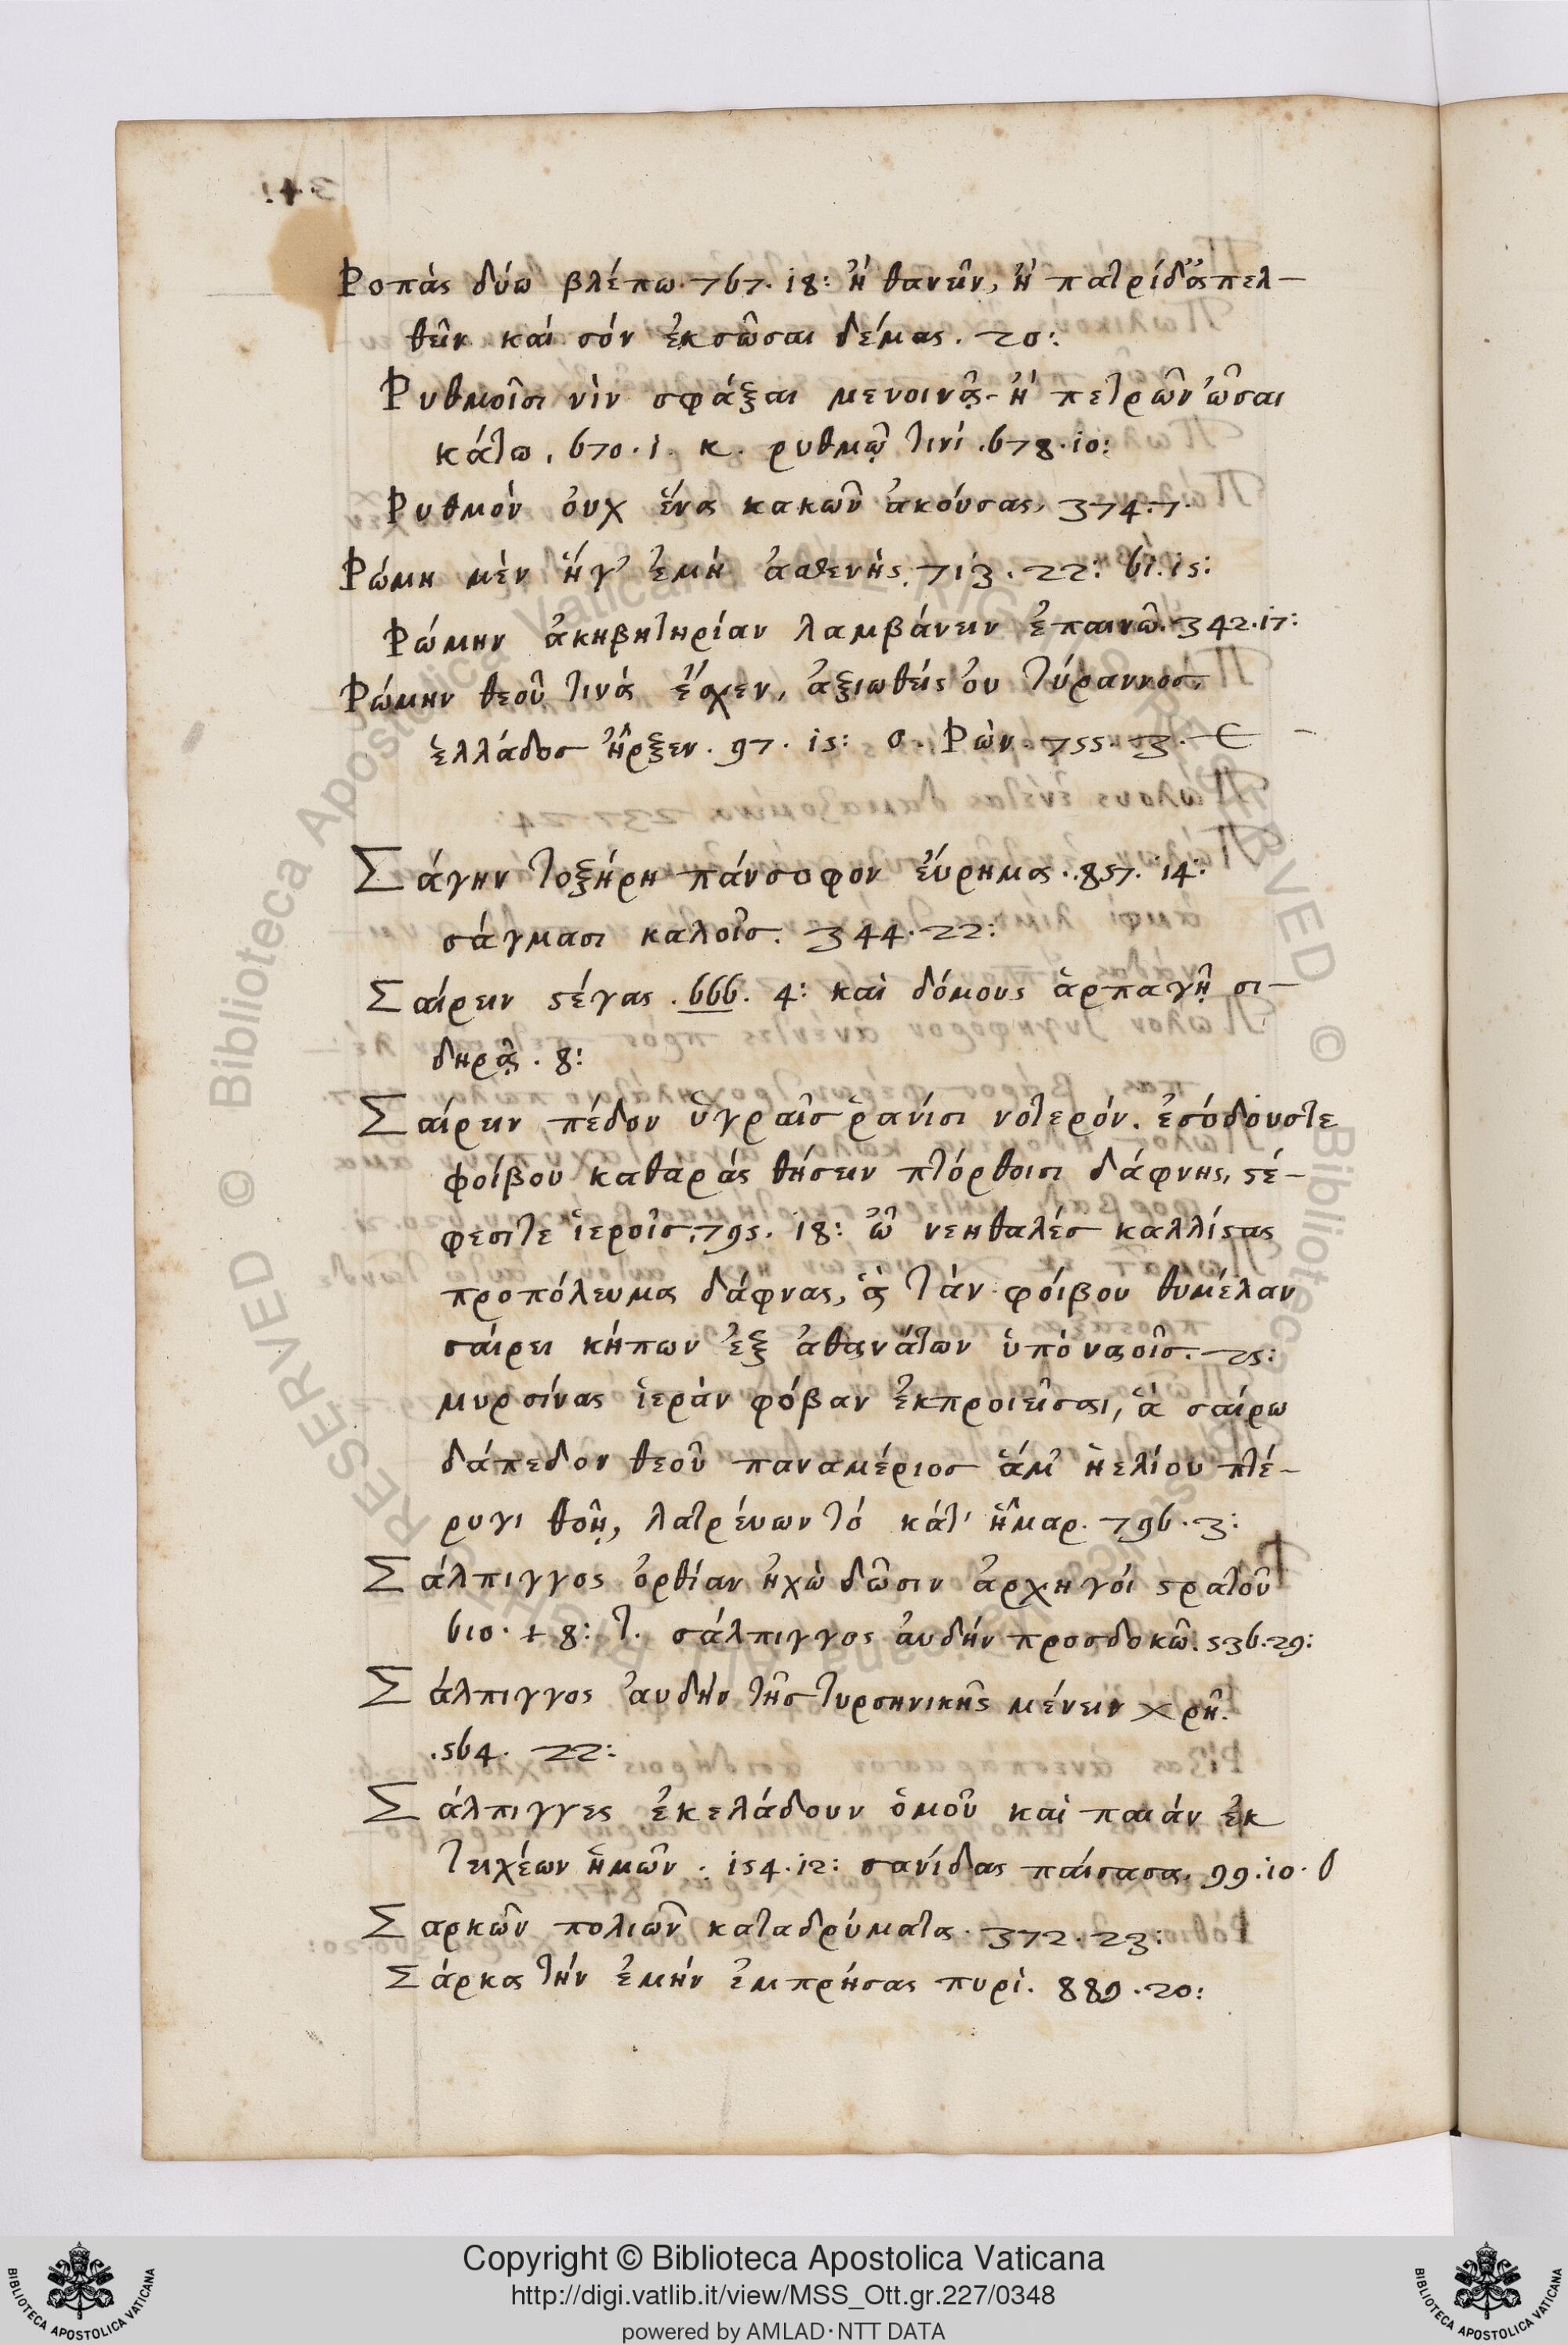 Ῥοπὰς δύω βλέπω. 767. 18: ἢ θανεῖν, ἢ πατρίδ᾽ ἀπελ-
θεῖν καί σόν ἐκσῶσαι δέμας. 20:
Ῥυθμοῖσι νὶν σφάξαι μενοινᾷς- ἢ πετρῶν ὦσαι
κάτω. 670. 1. κ. ρυθμῷ τινί. 678. 10:
Ῥυθμὸν ὀυχ ἕνα κακῶν ἀκούσας. 374. 7.
Ῥώμη μὲν ἥγ᾽ ἐμὴ ἀσθενὴς. 713. 22: 61. 15:
Ῥώμην ἀκηβητηρίαν λαμβάνειν ἐπαινῶ. 342. 17:
Ῥώμην θεοῦ τινὰ ἔσχεν, ἀξιωθεὶς ὀυ τύραννοσ,
ἑλλάδοσ ἦρξεν. 97. 15: σ. Ῥὼν. 755. 3.
Σάγην τοξήρη πάνσοφον ἕυρημα. 857. 14:
σάγμασι καλοῖσ. 344. 22:
Σαίρειν στέγας. 666. 4: καὶ δόμους ἁρπαγῇ σι-
δηρᾷ. 8:
Σαίρειν πέδον ὑγραῖσ ῥανίσι νοτερόν. ἐσόδουστε
φοίβου καθαρὰς θήσειν πτόρθοισι δάφνης, στέ-
φεσιτε ἱεροῖσ. 795. 18: ὦ νεηθαλέσ καλλίστας
προπόλευμα δάφνας, ἃ τὰν φοίβου θυμέλαν
σαίρει κήπων ἐξ ἀθανάτων ὑπὸ ναοῖσ. 25:
μυρσίνας ἱερὰν φόβαν ἐκπροιεῖσαι, ᾇ σαίρω
δάπεδον θεοῦ παναμέριοσ ἅμ᾽ ἡελίου πτέ-
ρυγι θοῇ, λατρέυων τό κάτ᾽ ἦμαρ. 796. 3:
Σάλπιγγος ὀρθίαν ἠχὼ δῶσιν ἀρχηγόι στρατοῦ
610. + 8: τ. σάλπιγγος ἀυδήν προσδοκῶ. 536. 29:
Σάλπιγγος ἀυδὴν τῆσ τυρσηνικῆς μένειν χρῆ.
.564. 22:
Σάλπιγγες ἐκελάδουν ὁμοῦ καὶ παιάν ἐκ
τειχέων ἡμῶν. 154. 12: σανίδας παίσασα. 99. 10.
Σαρκῶν πολιῶν καταδρύματα. 372. 23:
Σάρκα τήν ἐμήν ἐμπρήσας πυρί. 889. 20:
Copyright © Biblioteca Apostolica Vaticana
http://digi.vatlib.it/view/MSS_Ott.gr.227/0348
powered by AMLAD·NTT DATA